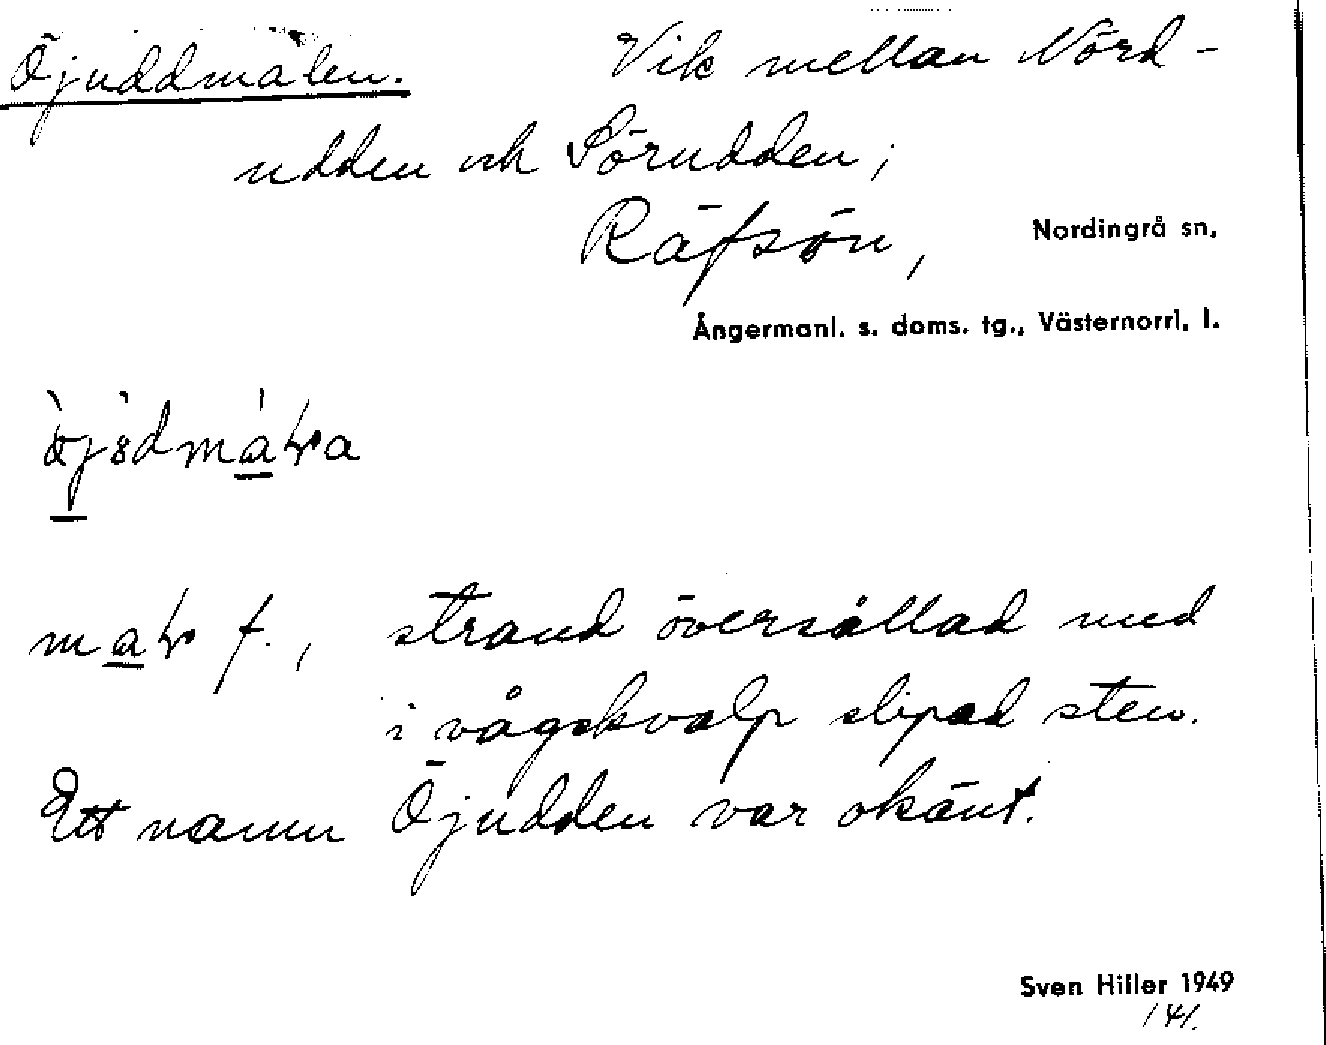 Öjuddmalen. Vik mellan Nord-
udden och Sörudden;
Räfsön, Nordingrå sn.
Ångermanl. s. doms. tg., Västernorrl. l.
f., strand översållad med
i vågskvalp slipad sten.
Ett namn Öjudden var okänt.
Sven Hiller 1949
141.